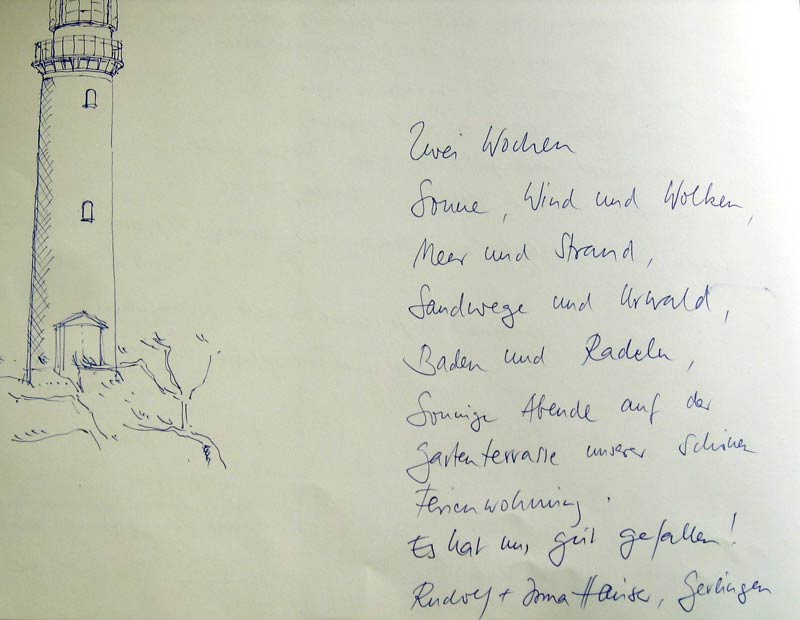 Zwei Wochen
Sonne, Wind und Wolken,
Meer und Strand,
Sandwege und Urwald,
Baden und Radeln,
Sonnige Abende auf der
Gartenterrasse unserer schönen
Ferienwohnung.
Es hat uns gut gefallen!
Rudolf + Irma Hauser, Gerlingen